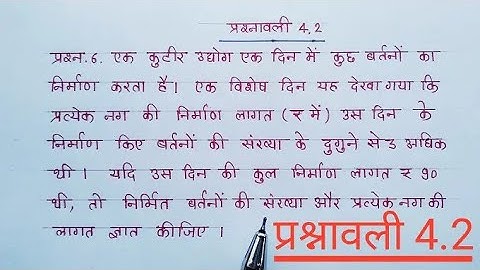 प्रश्नावली 4.2
प्रश्न.6. एक कुटीर उद्योग एक दिन में कुछ बर्तनों का
निर्माण करता है। एक विशेष दिन यह देखा गया कि
प्रत्येक नग की निर्माण लागत (₹ में) उस दिन के
निर्माण किए बर्तनों की संख्या के दुगुने से 3 अधिक
थी। यदि उस दिन की कुल निर्माण लागत ₹ 90
थी, तो निर्मित बर्तनों की संख्या और प्रत्येक नग की
लागत ज्ञात कीजिए।
प्रश्नावली 4.2